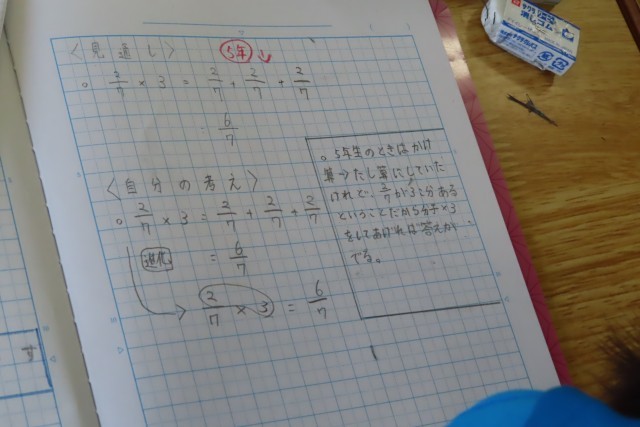 <見通し> 5年↓
。2/7 × 3 = 2/7 + 2/7 + 2/7
= 6/7
<自分の考え>
。2/7 × 3 = 2/7 + 2/7 + 2/7
進化 = 6/7
→ 2/7 × 3 = 6/7
。5年生のときはかけ
算→たし算にしていた
けれど、2/7が3こ分ある
ということだから分子×3
をしてあければ答えが
でる。